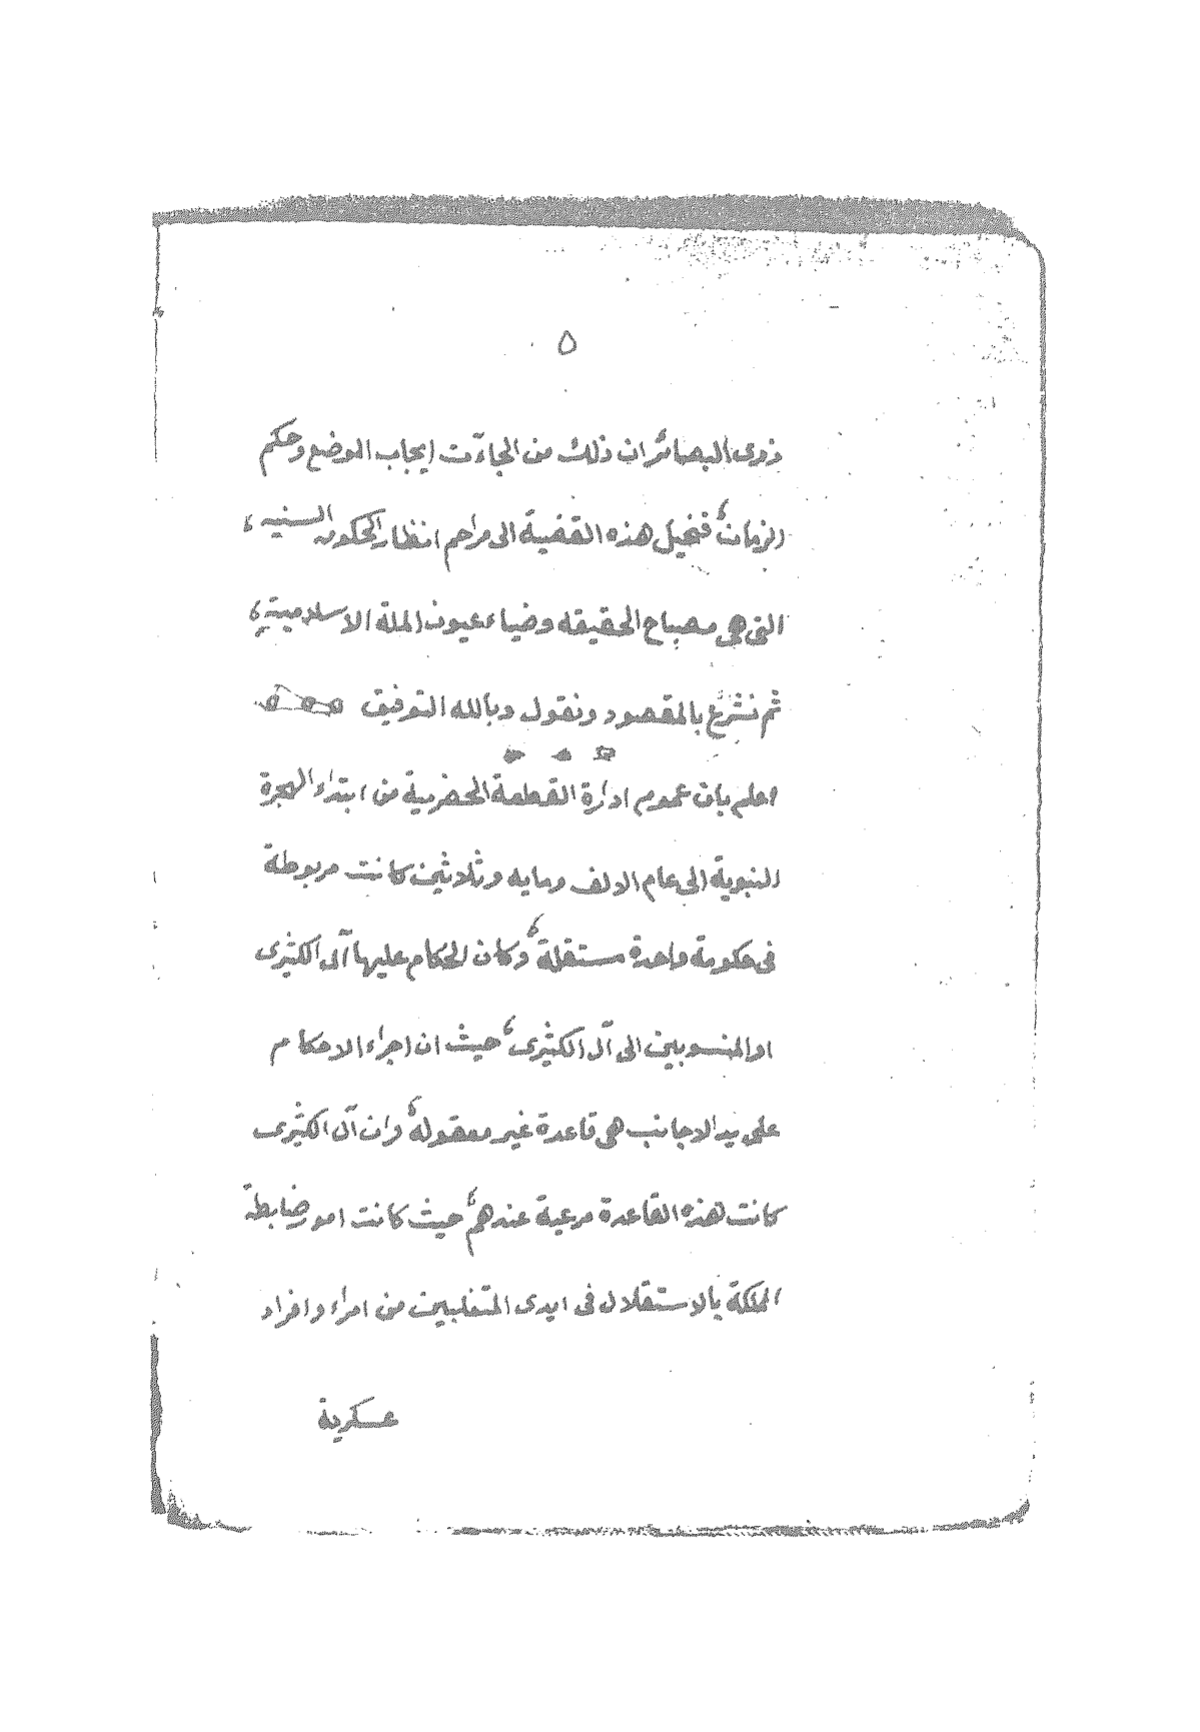 ٥
ذوى البصائر ان ذلك من الجاءت ايجاب الوضع وحكم
الزمان، فنحيل هذه القضية الى مراحم انظار الحكومه السنيه،
التى هى مصباح الحقيقه وضياء عيون الملة الاسلامية،
ثم نشرع بالمقصود ونقول وبالله التوفيق
اعلم بان عموم ادارة القطعة الحضرمية من ابتداء الهجرة
النبوية الى عام الالف ومايه وثلاثين كانت مربوطة
فى حكومة واحدة مستقلة، وكان الحكام عليها آل الكثيرى
او المنسوبين الى آل الكثيرى، حيث ان اجراء الاحكام
على يد الاجانب هى قاعدة غير معقوله، وان آل الكثيرى
كانت لهذه القاعدة مرعية عندهم، حيث كانت امور ضابطة
المملكة بالاستقلال فى ايدى المتغلبين من امراء وافراد
عسكرية